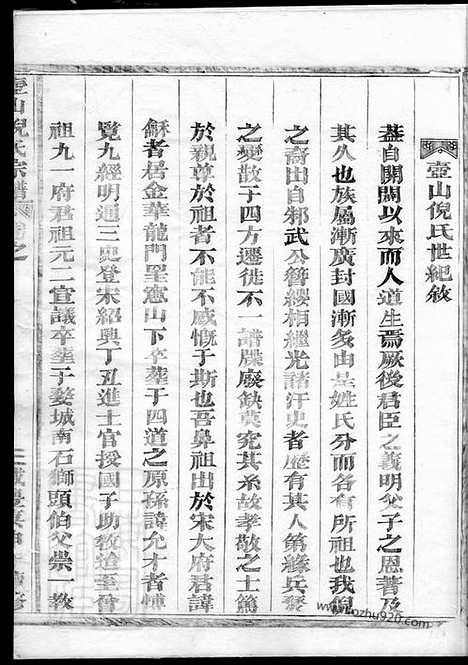 壺山倪氏世紀敘
葢自開闢以來而人道生焉厥後君臣之義明父子之恩著及
其久也族屬漸廣封國漸多由是姓氏分而各有所祖也我倪
之裔出自邾武公簪纓相繼光諸汗史者歷有其人第緣兵燹
之變散于四方遷徙不一譜牒廢缺莫究其系故孝敬之士篤
於親尊於祖者不能不感慨于斯也吾鼻祖出於宋大府君諱
穌者居金華龍門里意山下卒葬于四道之原孫諱允才者博
覽九經明通三史登宋紹興丁丑進士官授國子助教迨至曾
祖九一府君祖元二宣議卒葬于婺城南石獅頭伯父崇一教
壺山倪氏宗譜 卷之
咸豐 修
www.zohu920.com